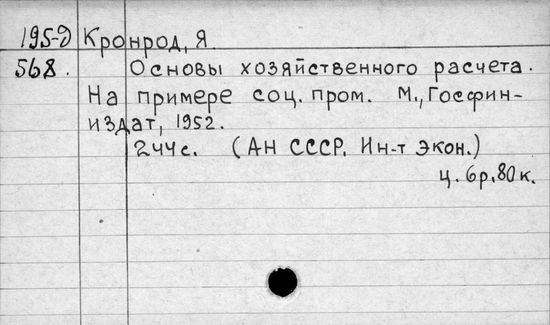 195-Д Кронрод, Я
568. Основы хозяйственного расчета.
На примере соц. пром. М., Госфин-
издат, 1952.
244с. (АН СССР. Ин-т Экон.)
ц. 6р. 80к.